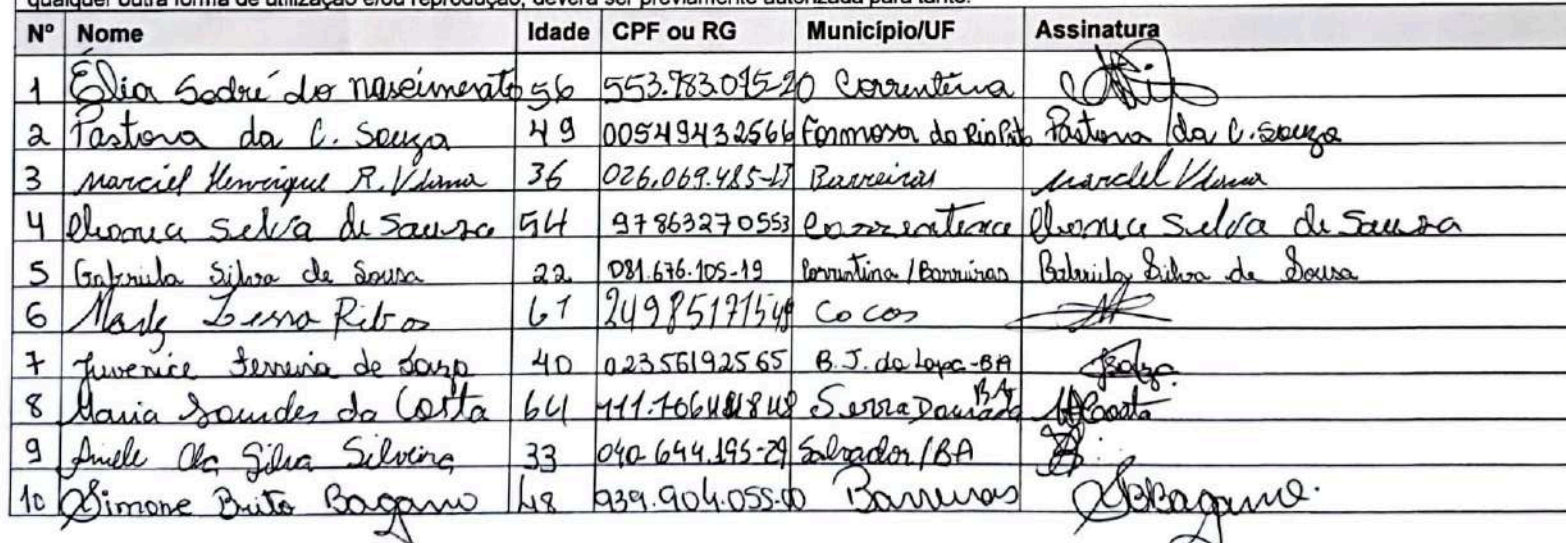 qualquer outra forma de utilização e/ou reprodução, deverá ser previamente autorizada para tanto.
Nº Nome Idade CPF ou RG Município/UF Assinatura
1 Élia Sodré do nascimento 56 553.783.015-20 Correntina
2 Pastora da C. Souza 49 00549432566 Formosa do Rio Preto Pastora da C. Souza
3 Marciel Henrique R. Viana 36 026.069.485-13 Barreiras Marciel Viana
4 Silva de Sousa 54 97863270553 Correntina Silva de Sousa
5 Gabriela Silva de Sousa 22 081.676.105-19 Correntina / Barreiras Gabriela Silva de Sousa
6 Lessa Ribas 61 Cocos
7 Juvenice Ferreira de Souza 40 02356192565 B. J. da Lapa-BA Souza
8 Maria Lourdes da Costa 64 Serra Dourada BA MCosta
9 da Silva Silveira 33 040.644.195-29 Salvador/BA
10 Simone Brito Bagano 48 939.904.055-00 Barreiras SBBagano.